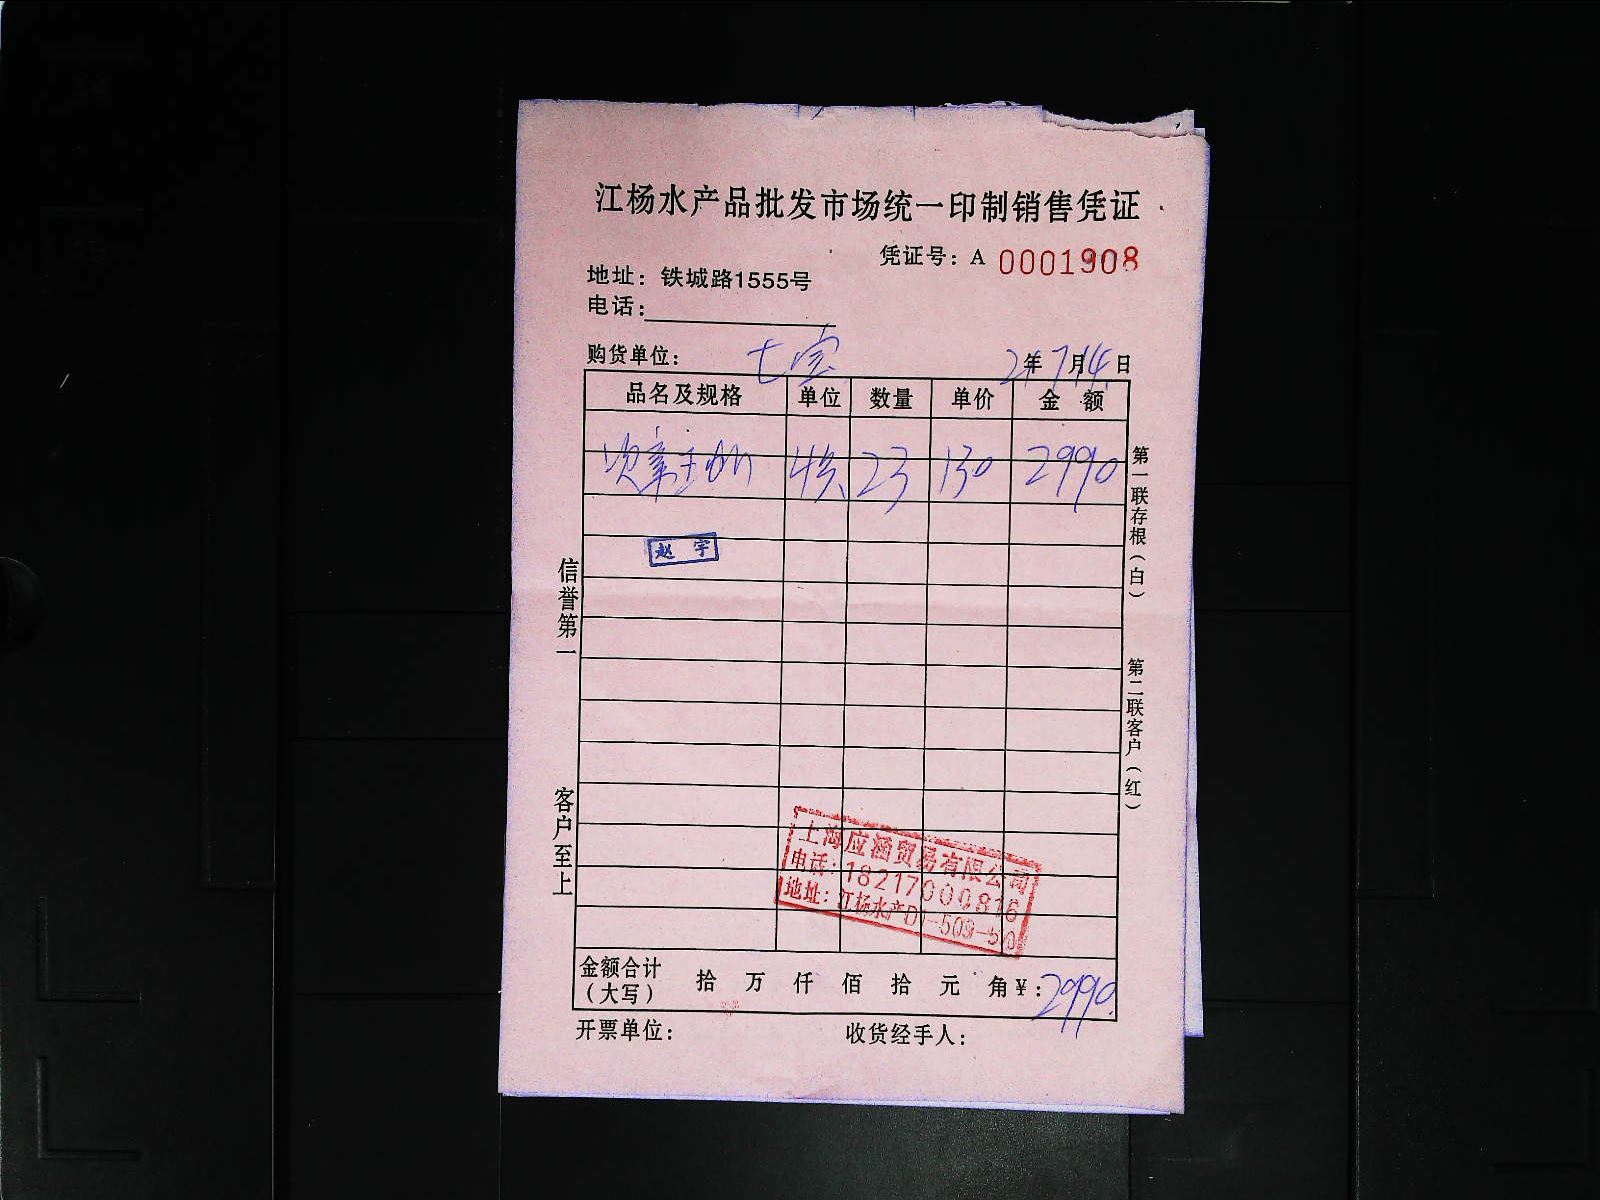 江杨水产品批发市场统一印制销售凭证
凭证号：A 0001908
地址：铁城路1555号
电话：
购货单位：七宝 21年7月14日
品名及规格 单位 数量 单价 金 额
23 130 2990
赵宇
信誉第一
客户至上
第一联存根（白）
第二联客户（红）
上海应涵贸易有限公司
电话：18217000816
地址：江杨水产D1-509-510
金额合计（大写） 拾 万 仟 佰 拾 元 角 ¥：2990
开票单位： 收货经手人：